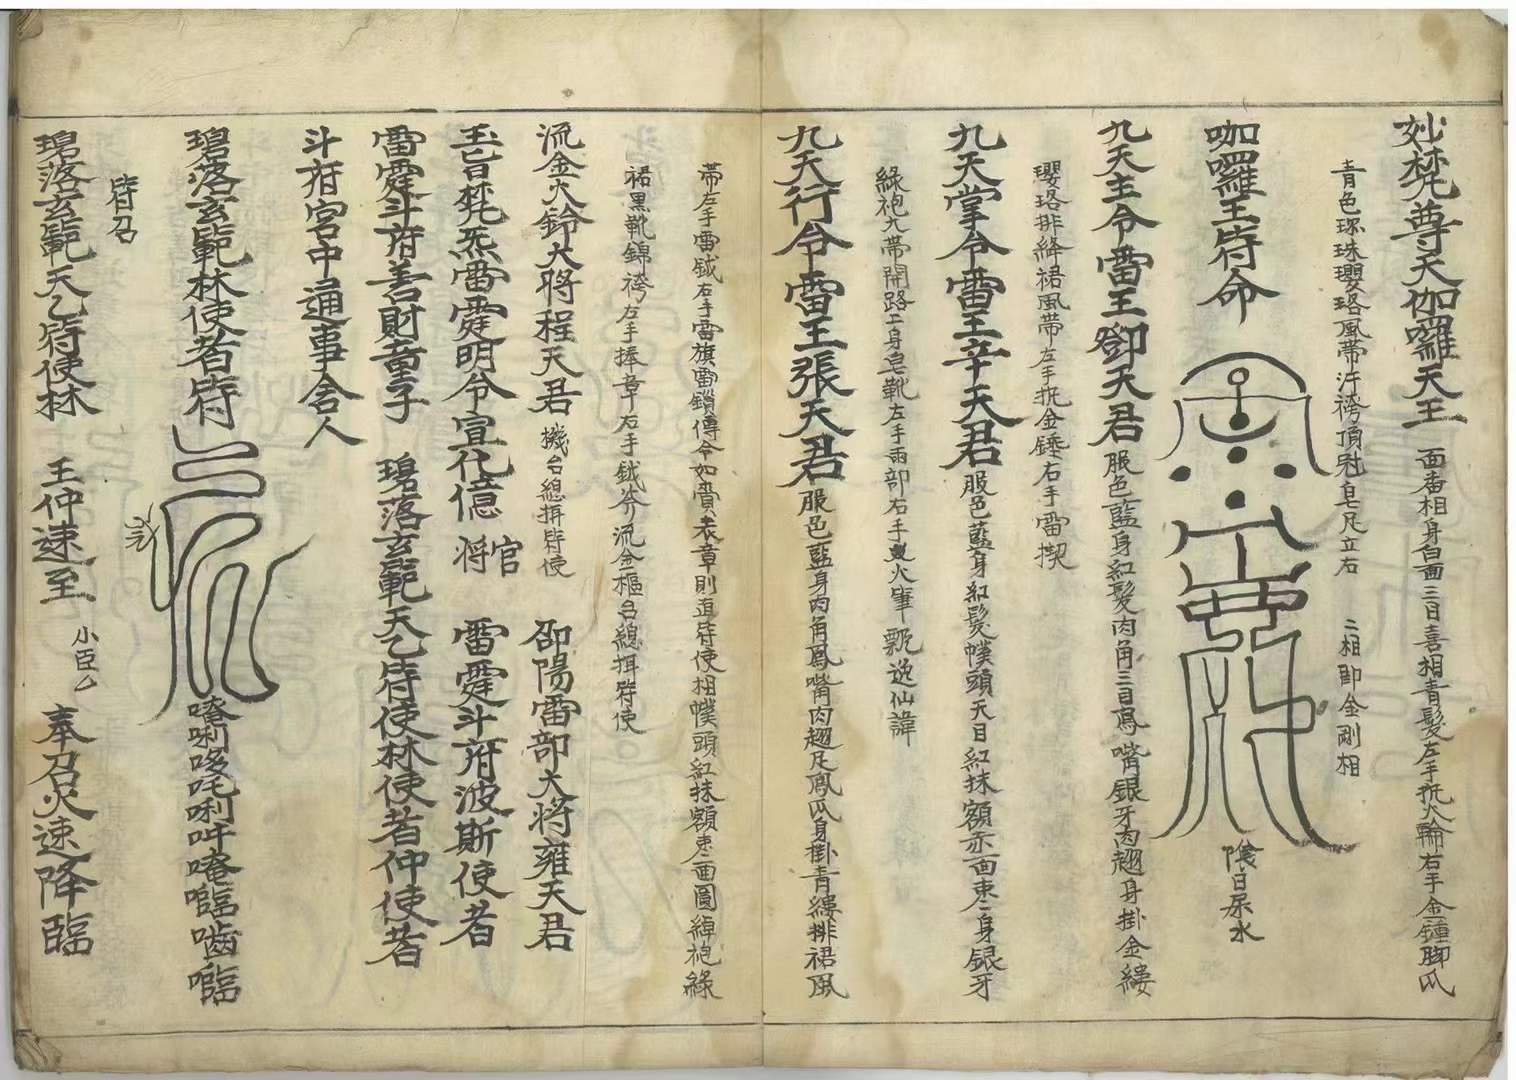 妙梵尊天伽囉天王 面番相身白面三目喜相青髮左手執火輪右手金鍾脚爪
青色琢珠瓔珞風帶汗袴頂冠皂尺立右 二相即金剛相
咖囉王符命 陰日尿水
九天主令雷王鄧天君 服色藍身紅髮肉角三目鳳嘴銀牙肉翅身掛金縷
瓔珞排絳裙風帶左手執金錘右手雷揳
九天掌令雷王辛天君 服色藍身紅髮幞頭天目紅抹額赤面束身銀牙
綠袍大帶開路工身皂靴左手雨部右手火筆 甄逸仙諱
九天行令雷王張天君 服色藍身肉角鳳嘴肉翅足鳳爪身掛青縷排裙風
帶左手雷鉞右手雷旗雷鎖傳令如賫表章則直符使相幞頭紅抹額束面圓綽袍綠
裙黑靴錦袴左手捧章右手鉞斧 流金樞台總捐符使
流金火鈴大將程天君 機台總捐符使 邵陽雷部大將雍天君
玉旨梵炁雷霆明令宣化億 將官 雷霆斗府波斯使者
雷霆斗府善財童子 碧落玄範天乙符使林使者仲使者
斗府宮中通事舍人
碧落玄範林使者符 唵唎哆吒唎吽唵𡃤嚙𡃤
符召
碧落玄範天乙符使林 王仲速至 小臣厶 奉召火速降臨